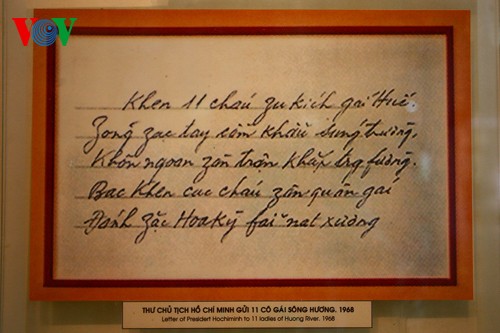 VOV
Khen 11 cháu zu kích gái Huế.
Zõng zạc tay cầm khẩu súng trường,
Khôn ngoan zàn trận khắp tra fường.
Bác khen các cháu zân quân gái
Đánh zặc Hoa Kỳ fải nát xương
THƯ CHỦ TỊCH HỒ CHÍ MINH GỬI 11 CÔ GÁI SÔNG HƯƠNG. 1968
Letter of Presidert Hochiminh to 11 ladies of Huong River. 1968